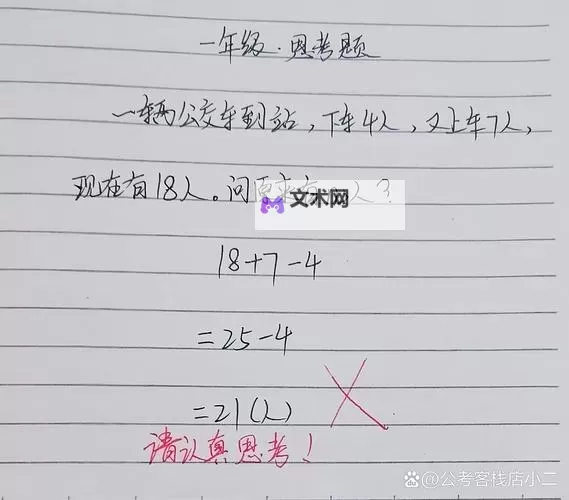 一年级·思考题
一辆公交车到站，下车4人，又上车7人，
现在有18人。问原来有 人？
文术网
18+7-4
=25-4
=21(人)
请认真思考！
@公考客栈店小二